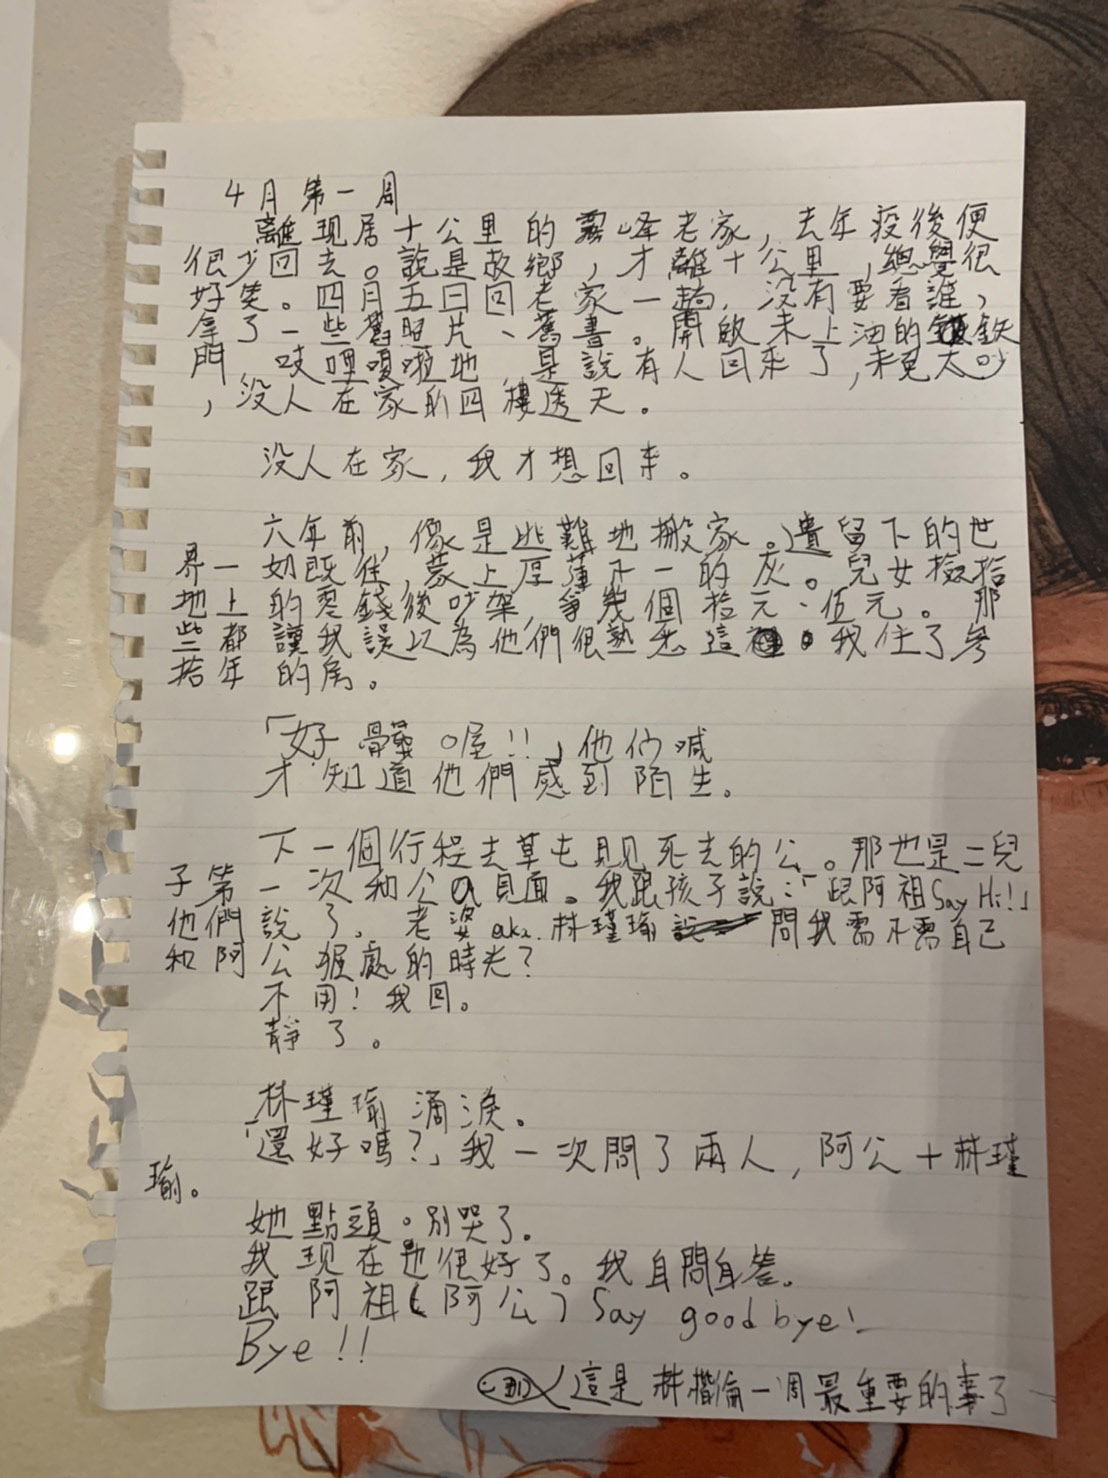 4月第一周
離現居十公里的霧峰老家，去年疫後便
很少回去。說是故鄉，才離十公里，總覺很
好笑。四月五日回老家一趟，沒有要看誰，
拿了一些舊照片、舊書。開啟未上油的鐵
門，吱哩嘎啦地，是說有人回來了，未免太吵
，沒人在家的四樓透天。
沒人在家，我才想回來。
六年前，像是逃難地搬家。遺留下的世
界一如既往，蒙上厚薄不一的灰。兒女撿拾
地上的零錢後吵架，爭幾個拾元、伍元。那
些都讓我誤以為他們很熟悉這裡。我住了參
拾年的房。
「好髒喔!!」他们喊
才知道他們感到陌生。
下一個行程去草屯見死去的公。那也是二兒
子第一次和公見面。我跟孩子說：「跟阿祖Say Hi!」
他們說了。老婆aka.林瑾瑜問我需不需自己
和阿公獨處的時光?
不用!我回。
靜了。
林瑾瑜滴淚。
「還好嗎?」我一次問了兩人，阿公＋林瑾
瑜。
她點頭。別哭了。
我现在也很好了。我自問自答。
跟阿祖(阿公)Say goodbye!
Bye!!
這是林楷倫一周最重要的事了